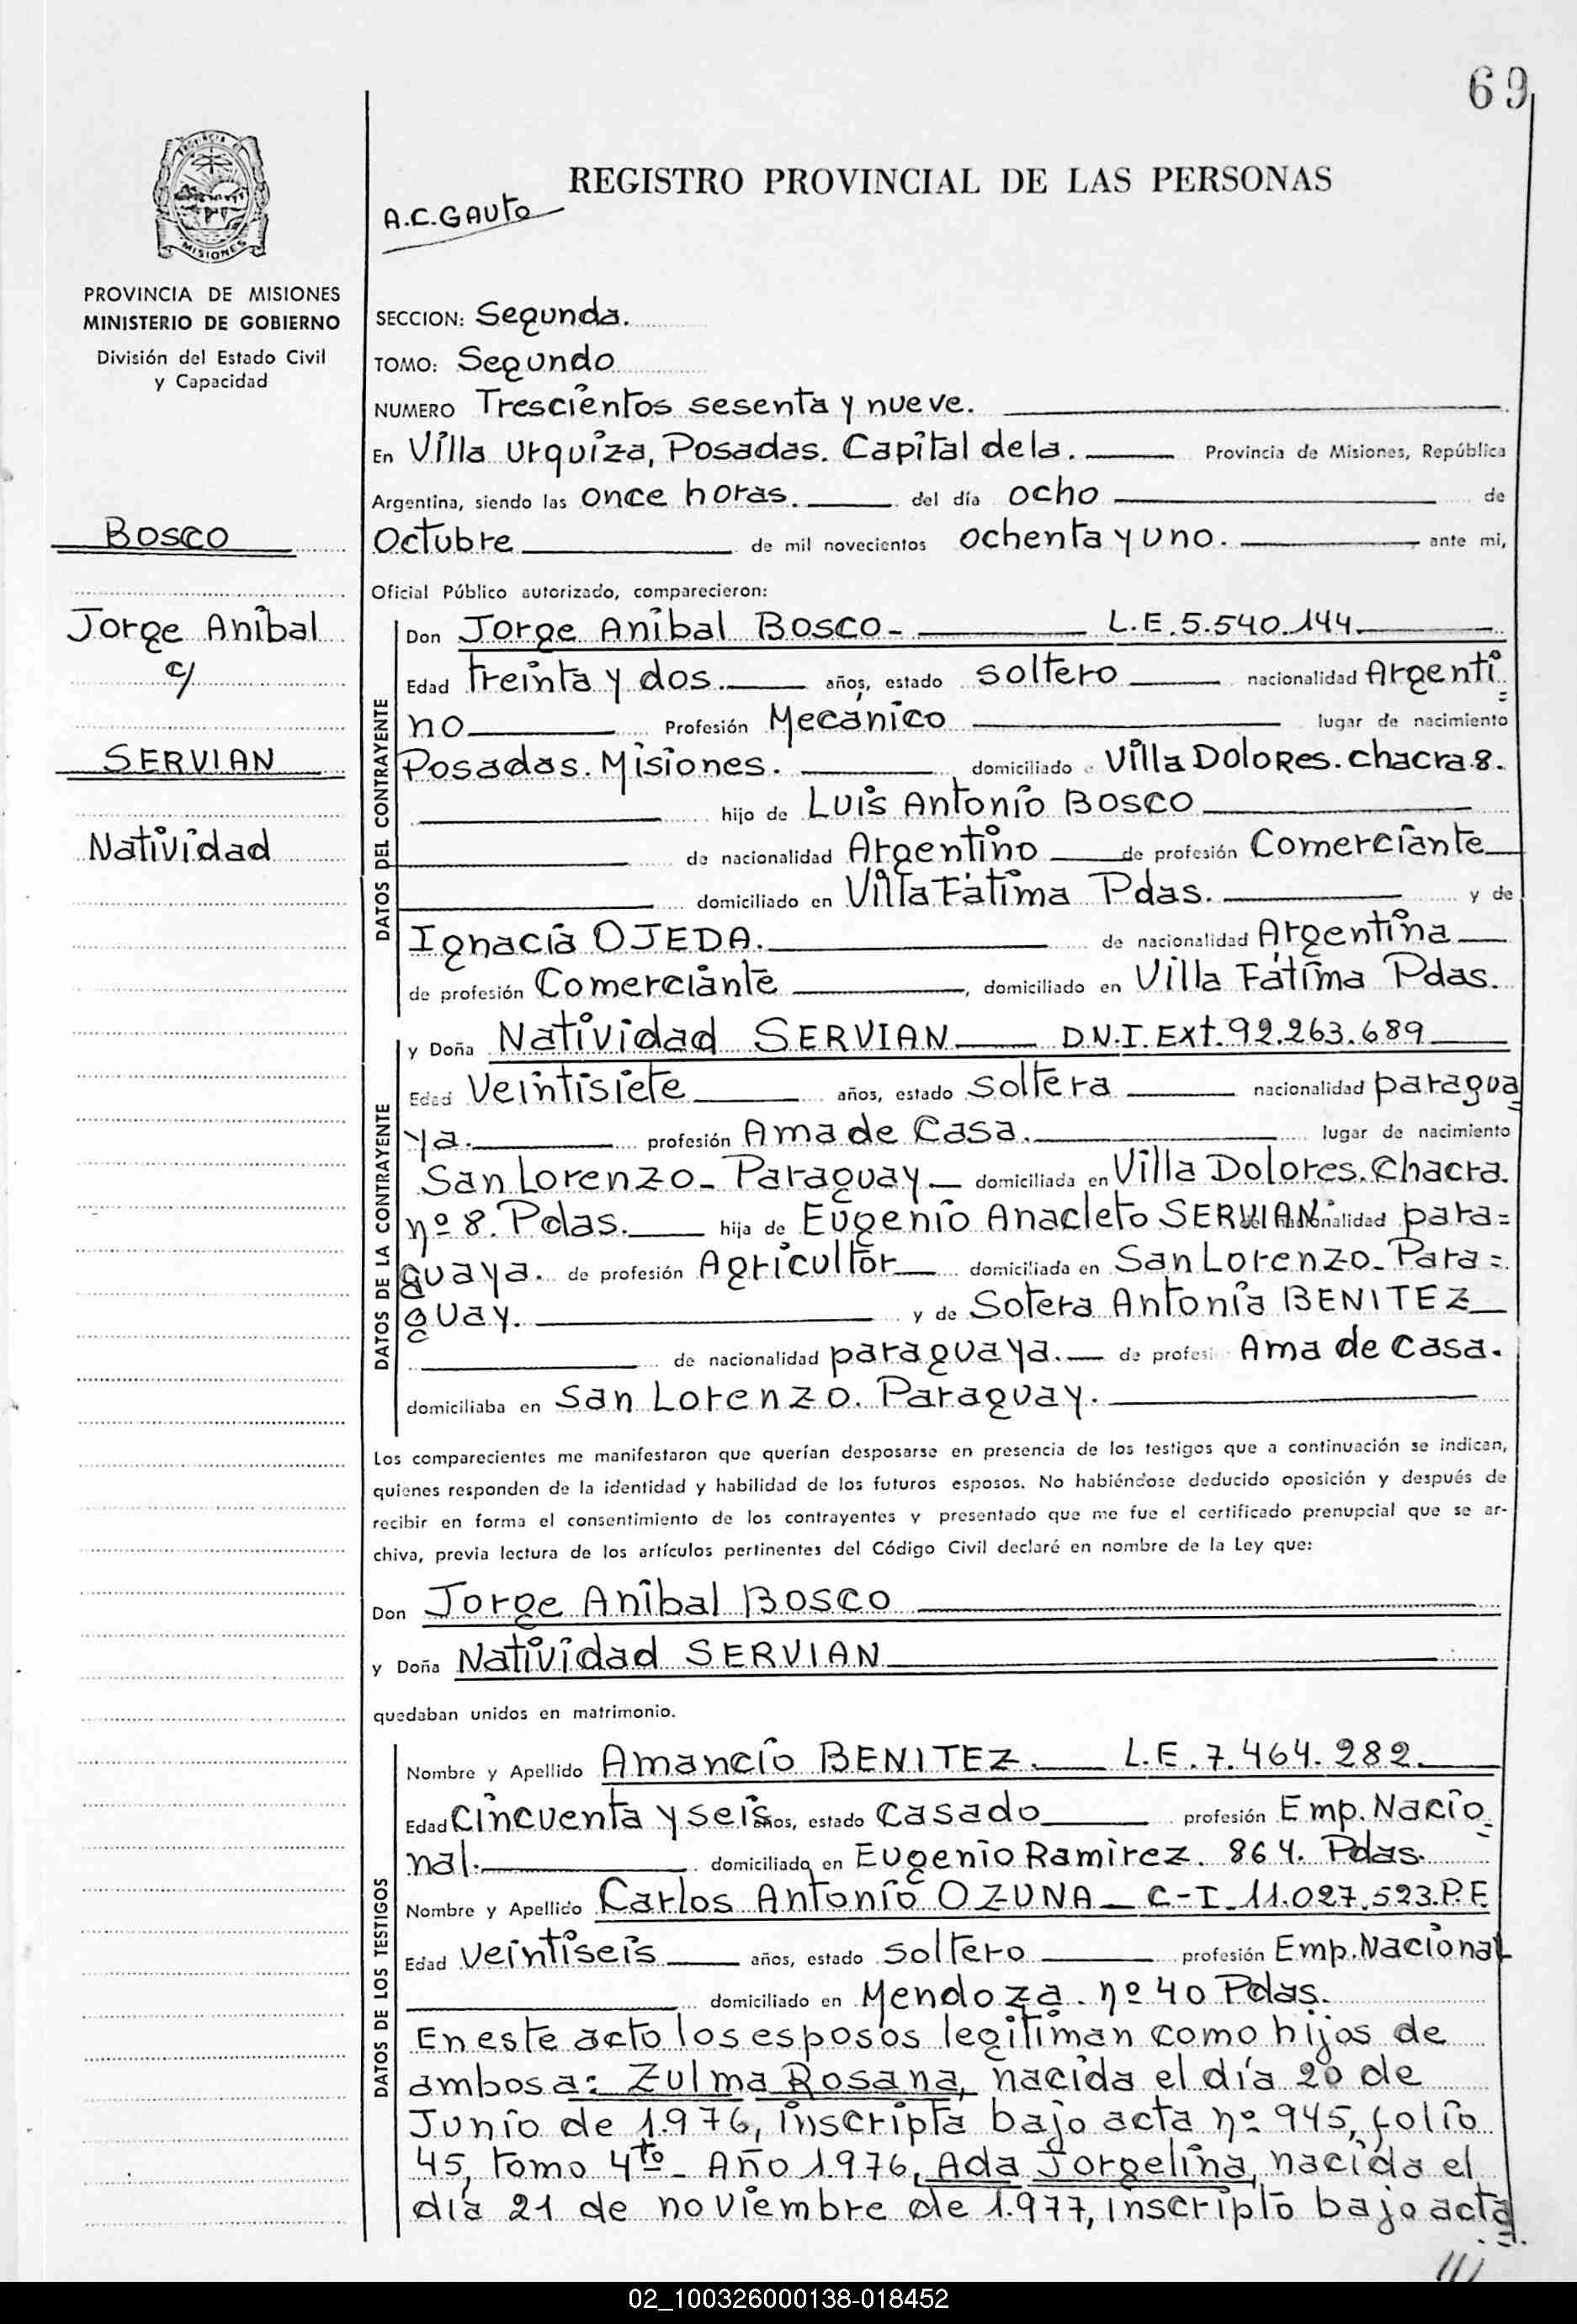 69
REGISTRO PROVINCIAL DE LAS PERSONAS
A.C.GAUTO
PROVINCIA DE
MISIONES
PROVINCIA DE MISIONES
MINISTERIO DE GOBIERNO
División del Estado Civil
y Capacidad
BOSCO
Jorge Anibal
c/
SERVIAN
Natividad
SECCION: Segunda.
TOMO: Segundo
NUMERO Trescientos sesenta y nueve.
En Villa Urquiza, Posadas. Capital de la. Provincia de Misiones, República
Argentina, siendo las once horas. del día ocho de
Octubre de mil novecientos ochenta y uno. ante mi,
Oficial Público autorizado, comparecieron:
DATOS DEL CONTRAYENTE
Don Jorge Anibal BOSCO- L.E.5.540.144.
Edad treinta y dos. años, estado soltero nacionalidad Argenti
no Profesión Mecánico lugar de nacimiento
Posadas. Misiones. domiciliado Villa Dolores. chacra 8.
hijo de Luis Antonio BOSCO
de nacionalidad Argentino de profesión Comerciante
domiciliado en Villa Fátima Pdas. y de
Ignacia OJEDA. de nacionalidad Argentina
de profesión Comerciante, domiciliado en Villa Fátima Pdas.
DATOS DE LA CONTRAYENTE
y Doña Natividad SERVIAN D.N.I. Ext. 92.263.689
Edad Veintisiete años, estado soltera nacionalidad paragua
ya. profesión Ama de Casa. lugar de nacimiento
San Lorenzo- Paraguay domiciliada en Villa Dolores. Chacra.
nº 8. Pdas. hija de Eugenio Anacleto SERVIAN de nacionalidad para=
guaya. de profesión Agricultor domiciliada en San Lorenzo- Para=
guay. y de Sotera Antonia BENITEZ
de nacionalidad paraguaya. de profesi Ama de Casa.
domiciliaba en San Lorenzo. Paraguay.
Los comparecientes me manifestaron que querían desposarse en presencia de los testigos que a continuación se indican,
quienes responden de la identidad y habilidad de los futuros esposos. No habiéndose deducido oposición y después de
recibir en forma el consentimiento de los contrayentes y presentado que me fue el certificado prenupcial que se ar-
chiva, previa lectura de los artículos pertinentes del Código Civil declaré en nombre de la Ley que:
Don Jorge Anibal BOSCO
y Doña Natividad SERVIAN
quedaban unidos en matrimonio.
DATOS DE LOS TESTIGOS
Nombre y Apellido Amancio BENITEZ. L.E.7.464.282.
Edad Cincuenta y seis años, estado Casado profesión Emp. Nacio
nal. domiciliado en Eugenio Ramirez. 864. Pdas.
Nombre y Apellido Carlos Antonio OZUNA C-I 11.027.523.P.F.
Edad veintiseis años, estado soltero profesión Emp. Nacional
domiciliado en Mendoza. nº 40 Pdas.
En este acto los esposos legitiman como hijos de
ambos a: Zulma Rosana, nacida el día 20 de
Junio de 1.976, inscripta bajo acta nº 945, folio
45, tomo 4to- Año 1.976, Ada Jorgelina, nacida el
día 21 de noviembre de 1.977, inscripto bajo acta
///
02_100326000138-018452